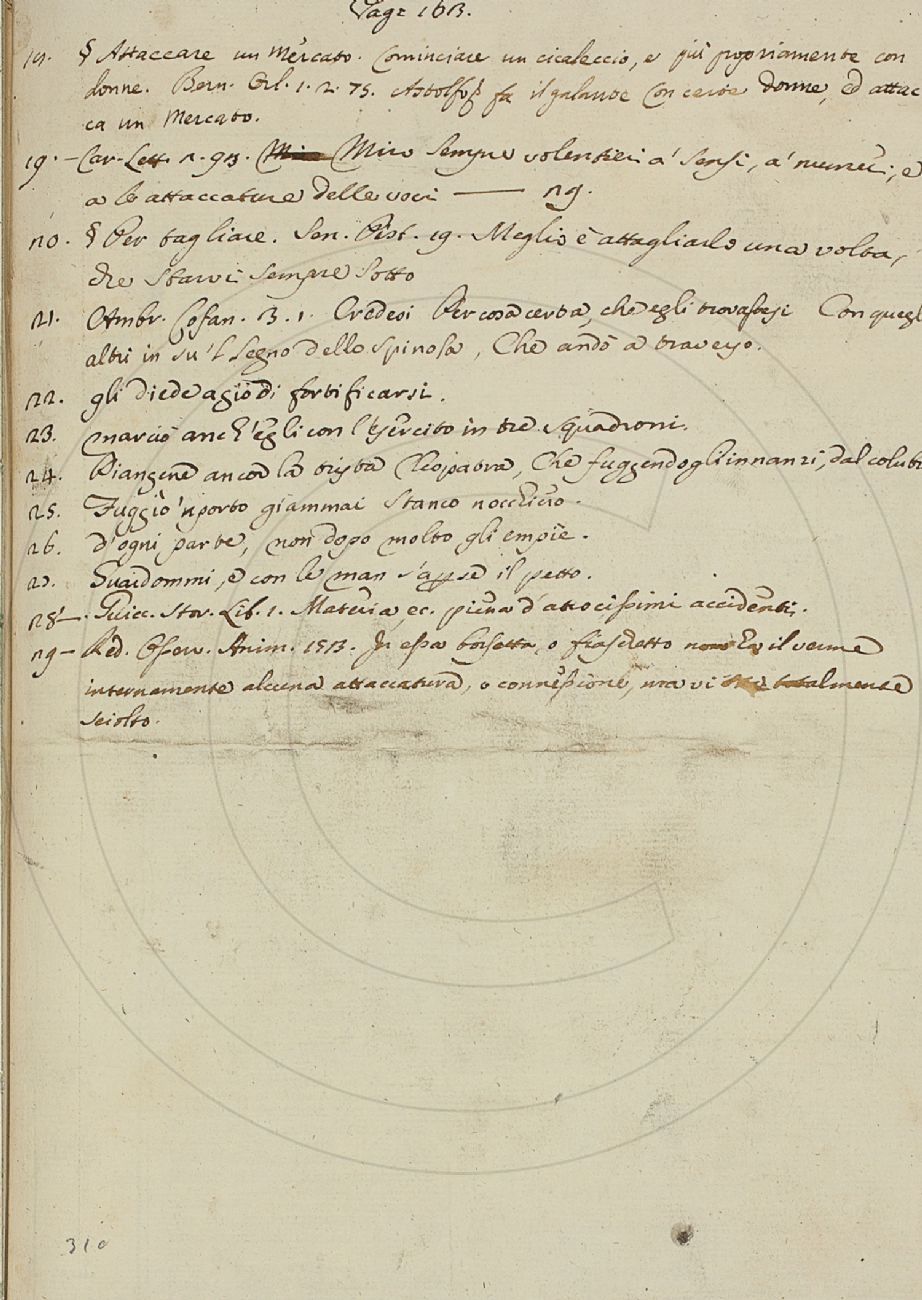 Pag: 163.
19. § Attaccare un Mercato. Cominciare un cicaleccio, e più propriamente con
donne. Bern. Orl. 1. 2. 75. Astolfo fa il galante con certe donne, ed attac
ca un Mercato.
19. — Car. Lett. 2. 93. Miro sempre volentieri a' sensi, a' numeri, e
a le attaccature delle voci —— 29.
20. § Per tagliare. Sen. Pist. 19. Meglio è attagliarlo una volta,
che starvi sempre sotto
21. Ambr. Cofan. 3. 1. Credesi Per cosa certa, che egli trovastesi Con quegl
altri in su 'l legno dello Spinola, Che andò a traverso.
22. gli diede agio di fortificarsi.
23. marciò anch' egli con l'esercito in tre squadroni.
24. Piangene ancor la trista Cleopatra, Che fuggendogli innanzi, dal colub
25. Fuggìo 'n porto giammai stanco nocchiero.
26. d'ogni parte, non dopo molto gli empiè.
27. Guardommi, e con le man s'aperse il petto.
28 — Guicc. Stor. Lib. 1. Materia, ec. piena d'atrocissimi accidenti.
29 — Red. Osserv. Anim. 153. In essa borsetta, o fiaschetto il verme
internamente alcuna attaccatura, o connessione, ma vi totalmente
sciolto.
310